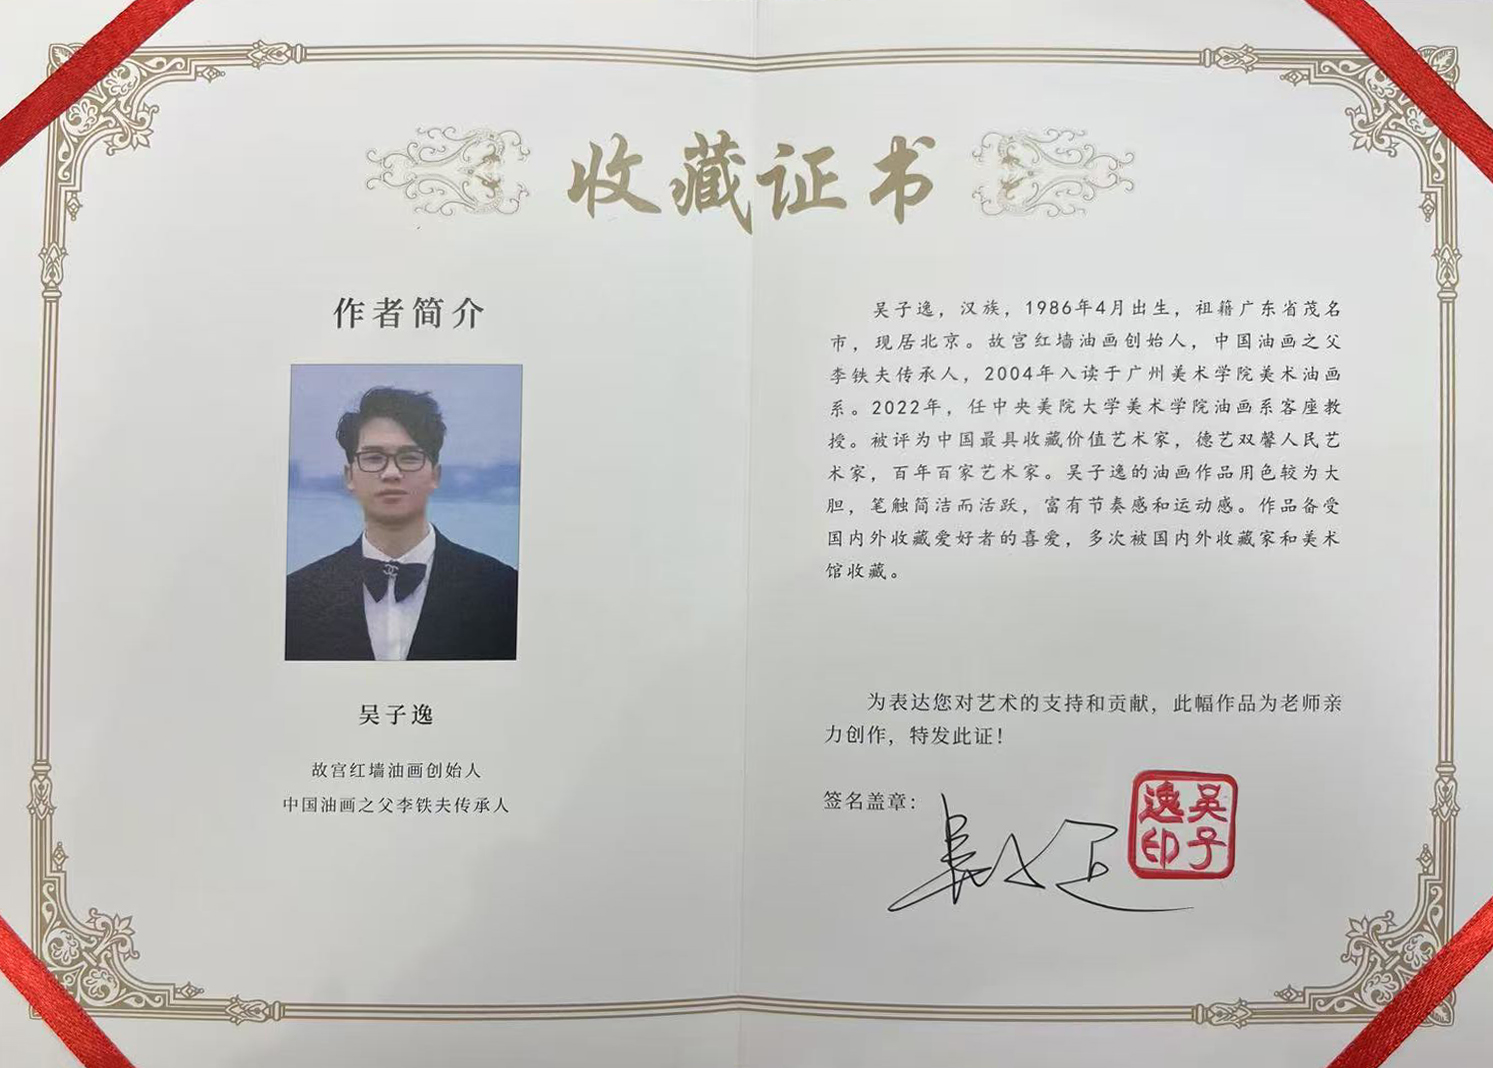 收藏证书
作者简介
吴子逸
故宫红墙油画创始人
中国油画之父李铁夫传承人
吴子逸，汉族，1986年4月出生，祖籍广东省茂名
市，现居北京。故宫红墙油画创始人，中国油画之父
李铁夫传承人，2004年入读于广州美术学院美术油画
系。2022年，任中央美院大学美术学院油画系客座教
授。被评为中国最具收藏价值艺术家，德艺双馨人民艺
术家，百年百家艺术家。吴子逸的油画作品用色较为大
胆，笔触简洁而活跃，富有节奏感和运动感。作品备受
国内外收藏爱好者的喜爱，多次被国内外收藏家和美术
馆收藏。
为表达您对艺术的支持和贡献，此幅作品为老师亲
力创作，特发此证！
签名盖章：
吴子
逸印